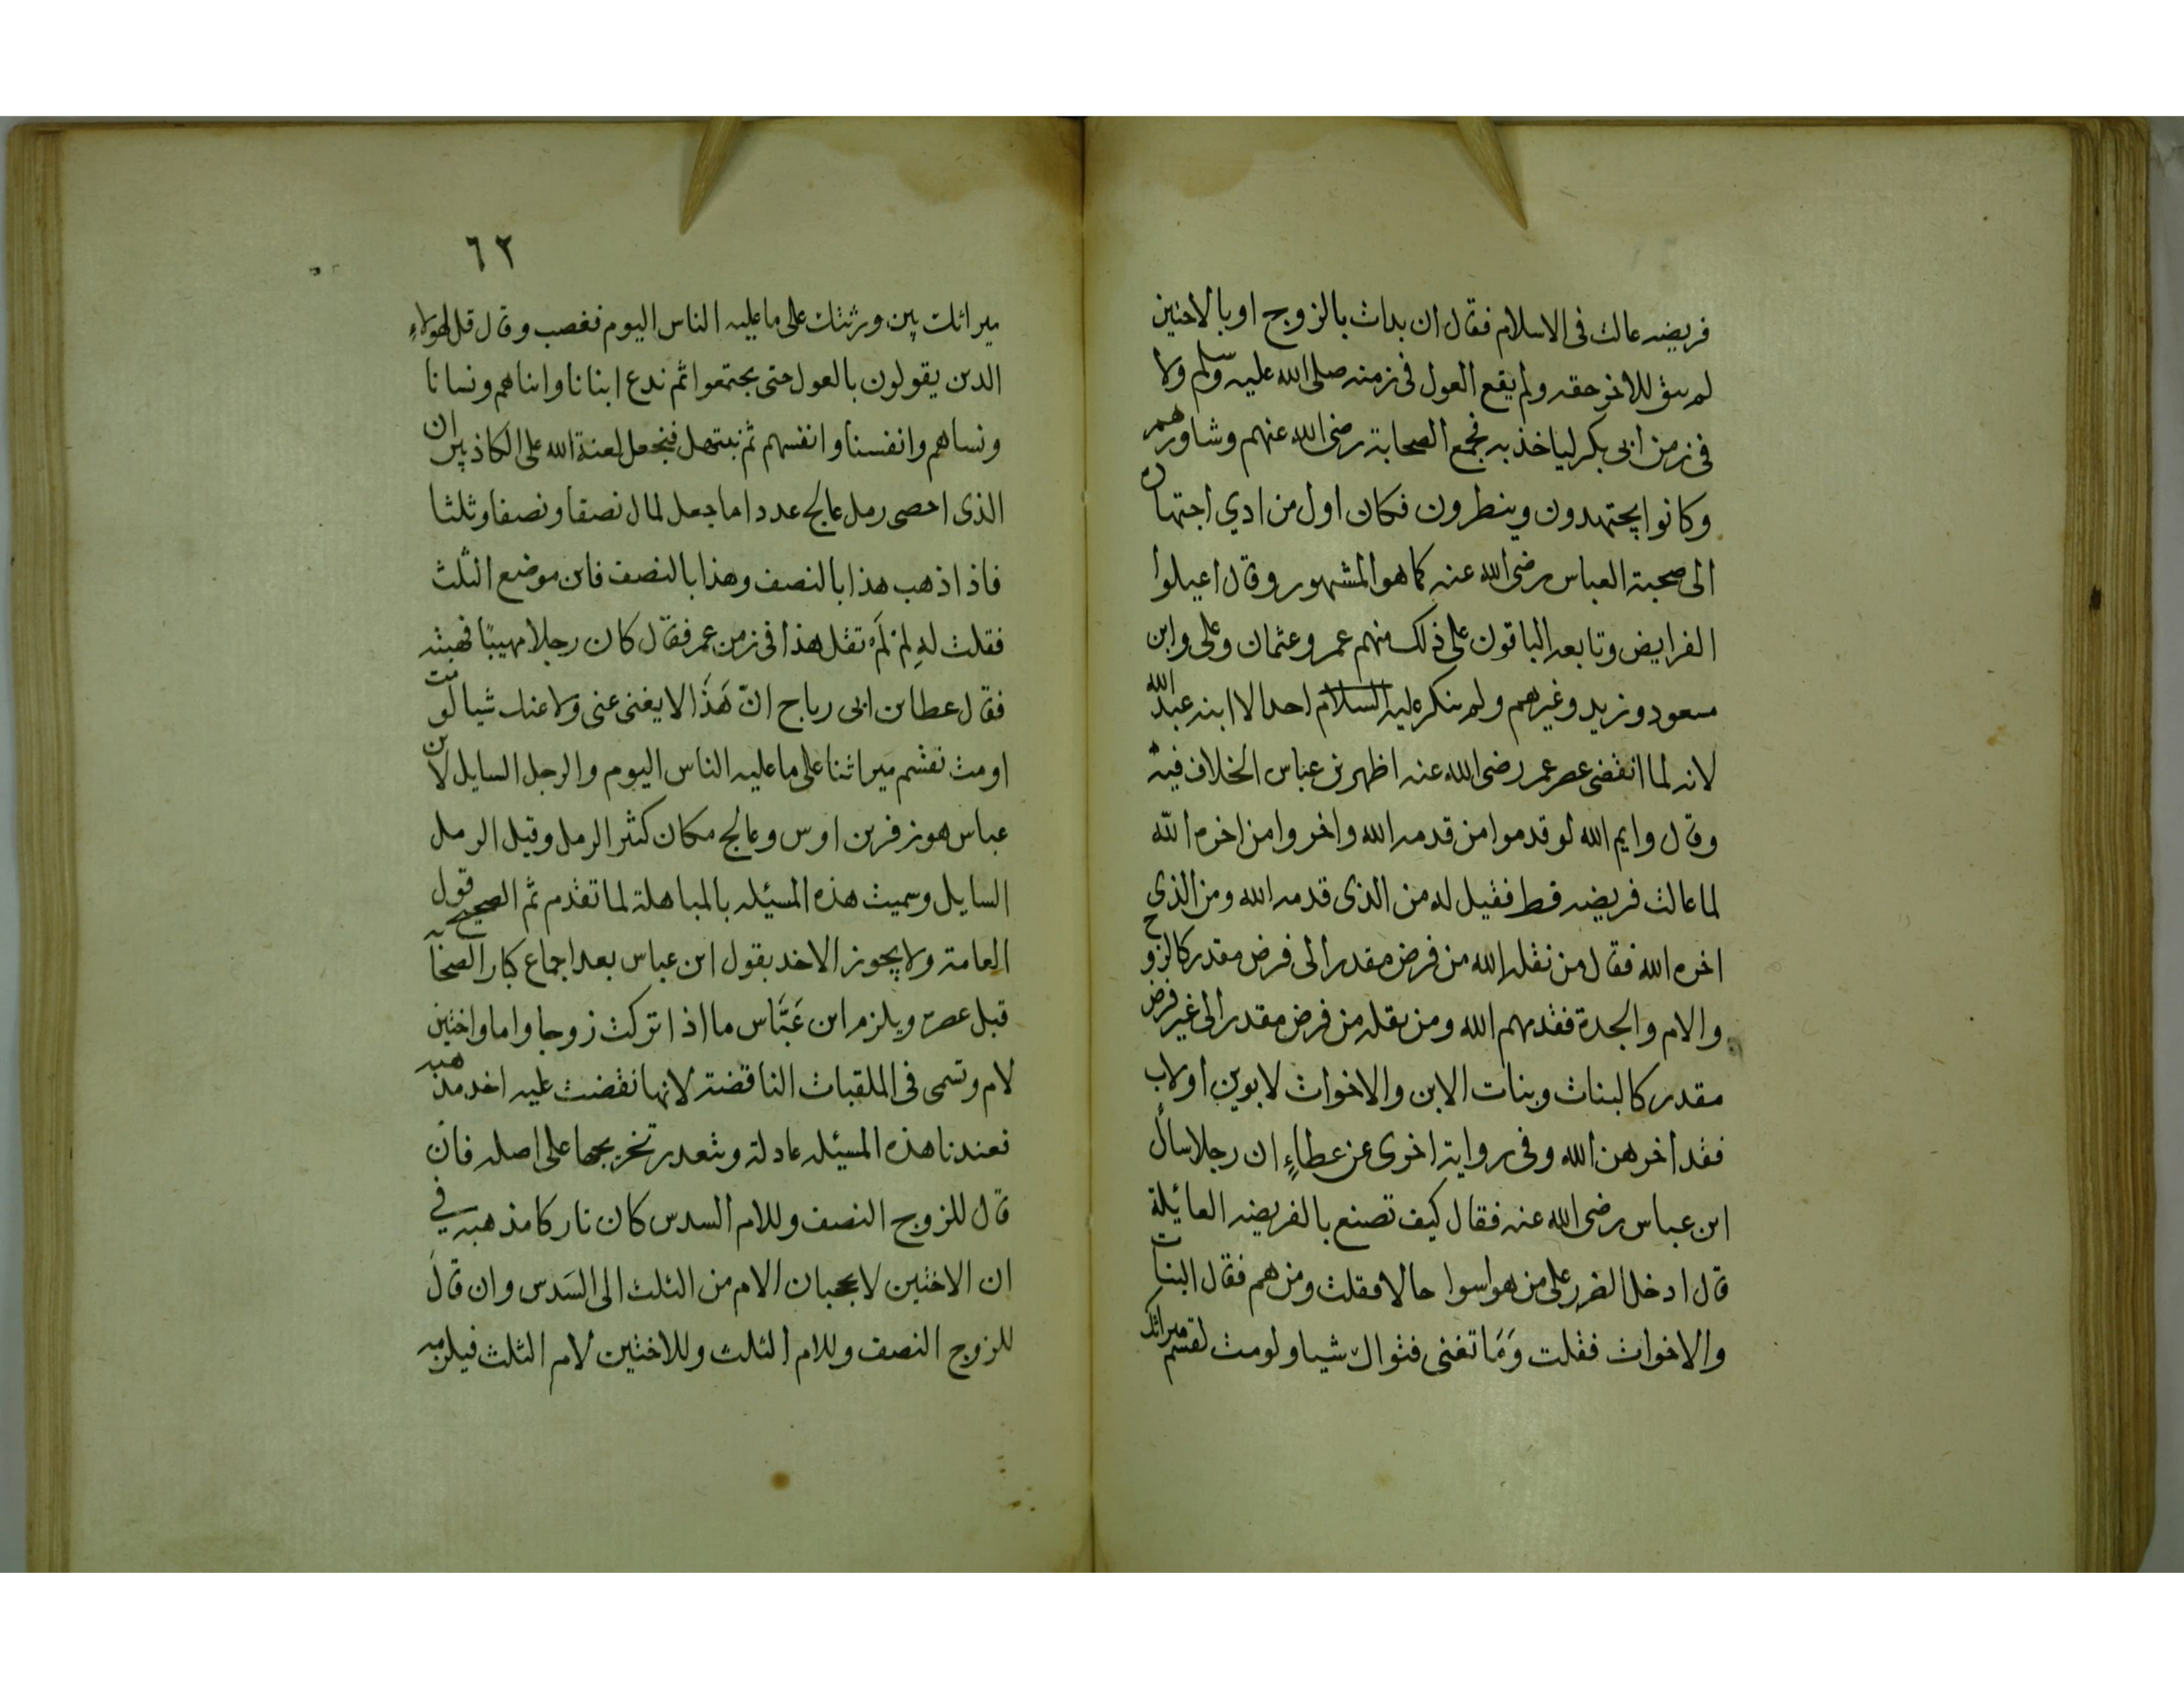 فريضه عالت فى الاسلام فقال ان بدات بالزوج او بالاختين
لم يبق للاخر حقه ولم يقع العول فى زمنه صلى الله عليه وسلم ولا
فى زمن ابى بكر لياخذ به فجمع الصحابة رضى الله عنهم وشاورهم
وكانوا يجتهدون وينظرون فكان اول من ادي اجتهاده
الى صحبة العباس رضى الله عنه كما هو المشهور وقال اعيلوا
الفرايض وتابعه الباقون على ذلك منهم عمر وعثمان وعلى وابن
مسعود وزيد وغيرهم ولم ينكر عليه السلام احد الا ابنه عبد الله
لانه لما انقضى عصر عمر رضى الله عنه اظهر بن عباس الخلاف فيه
وقال وايم الله لو قدموا من قدمه الله واخروا من اخره الله
لما عالت فريضه قط فقيل له من الذى قدمه الله ومن الذي
اخره الله فقال من نقله الله من فرض مقدر الى فرض مقدر كالزوج
والام والجدة فقدمهم الله ومن نقله من فرض مقدر الى غير فرض
مقدر كالبنات وبنات الابن والاخوات لابوين او لاب
فقد اخرهن الله وفى رواية اخرى عن عطاءٍ ان رجلا سأل
ابن عباس رضى الله عنه فقال كيف تصنع بالفريضه العائلة
قال ادخل الضرر على من هو اسوا حالا فقلت ومن هم فقال البنات
والاخوات فقلت وَمَا تغنى فتواك شيا ولو مت لقسم ميراثك
٦٢
ميراثك بين ورثتك على ما عليه الناس اليوم فغصب وقال قل لهولاءِ
الدين يقولون بالعول حتى يجتمعوا ثم ندع ابنانا وابناهم ونسانا
ونساهم وانفسنا وانفسهم ثم نبتهل فنجعل لعنة الله على الكاذبين ان
الذى احصى رمل عالج عددا ما جعل لمال نصفا ونصفا وثلثا
فاذا ذهب هذا بالنصف وهذا بالنصف فاين موضع الثلث
فقلت له لِمَ لَمْ تقل هذا فى زمن عمر فقال كان رجلا مهيبًا فهبته
فقال عطا بن ابى رباح انّ هَذَا لا يغنى عنى ولا عنك شيا لو مت
او مت نقسم ميراثنا على ما عليه الناس اليوم والرجل السايل لابن
عباس هو زفر بن اوس وعالج مكان كثير الرمل وقيل الرمل
السايل وسميت هذه المسئله بالمباهلة لما تقدم ثم الصحيح قول
العامة ولا يجوز الاخد بقول ابن عباس بعد اجماع كبار الصحابه
قبل عصره ويلزم ابن عَبَّاس ما اذا تركت زوجا واما واختين
لام وتسمى فى الملقبات الناقضة لانها نقضت عليه احد مذهبيه
فعندنا هذه المسئله عادلة وتعدر تخريجها على اصله فان
قال للزوج النصف وللام السدس كان تاركا مذهبه في
ان الاختين لا يحجبان الام من الثلث الى السَدس وان قالَ
للزوج النصف وللام الثلث وللاختين لام الثلث فيلزمه